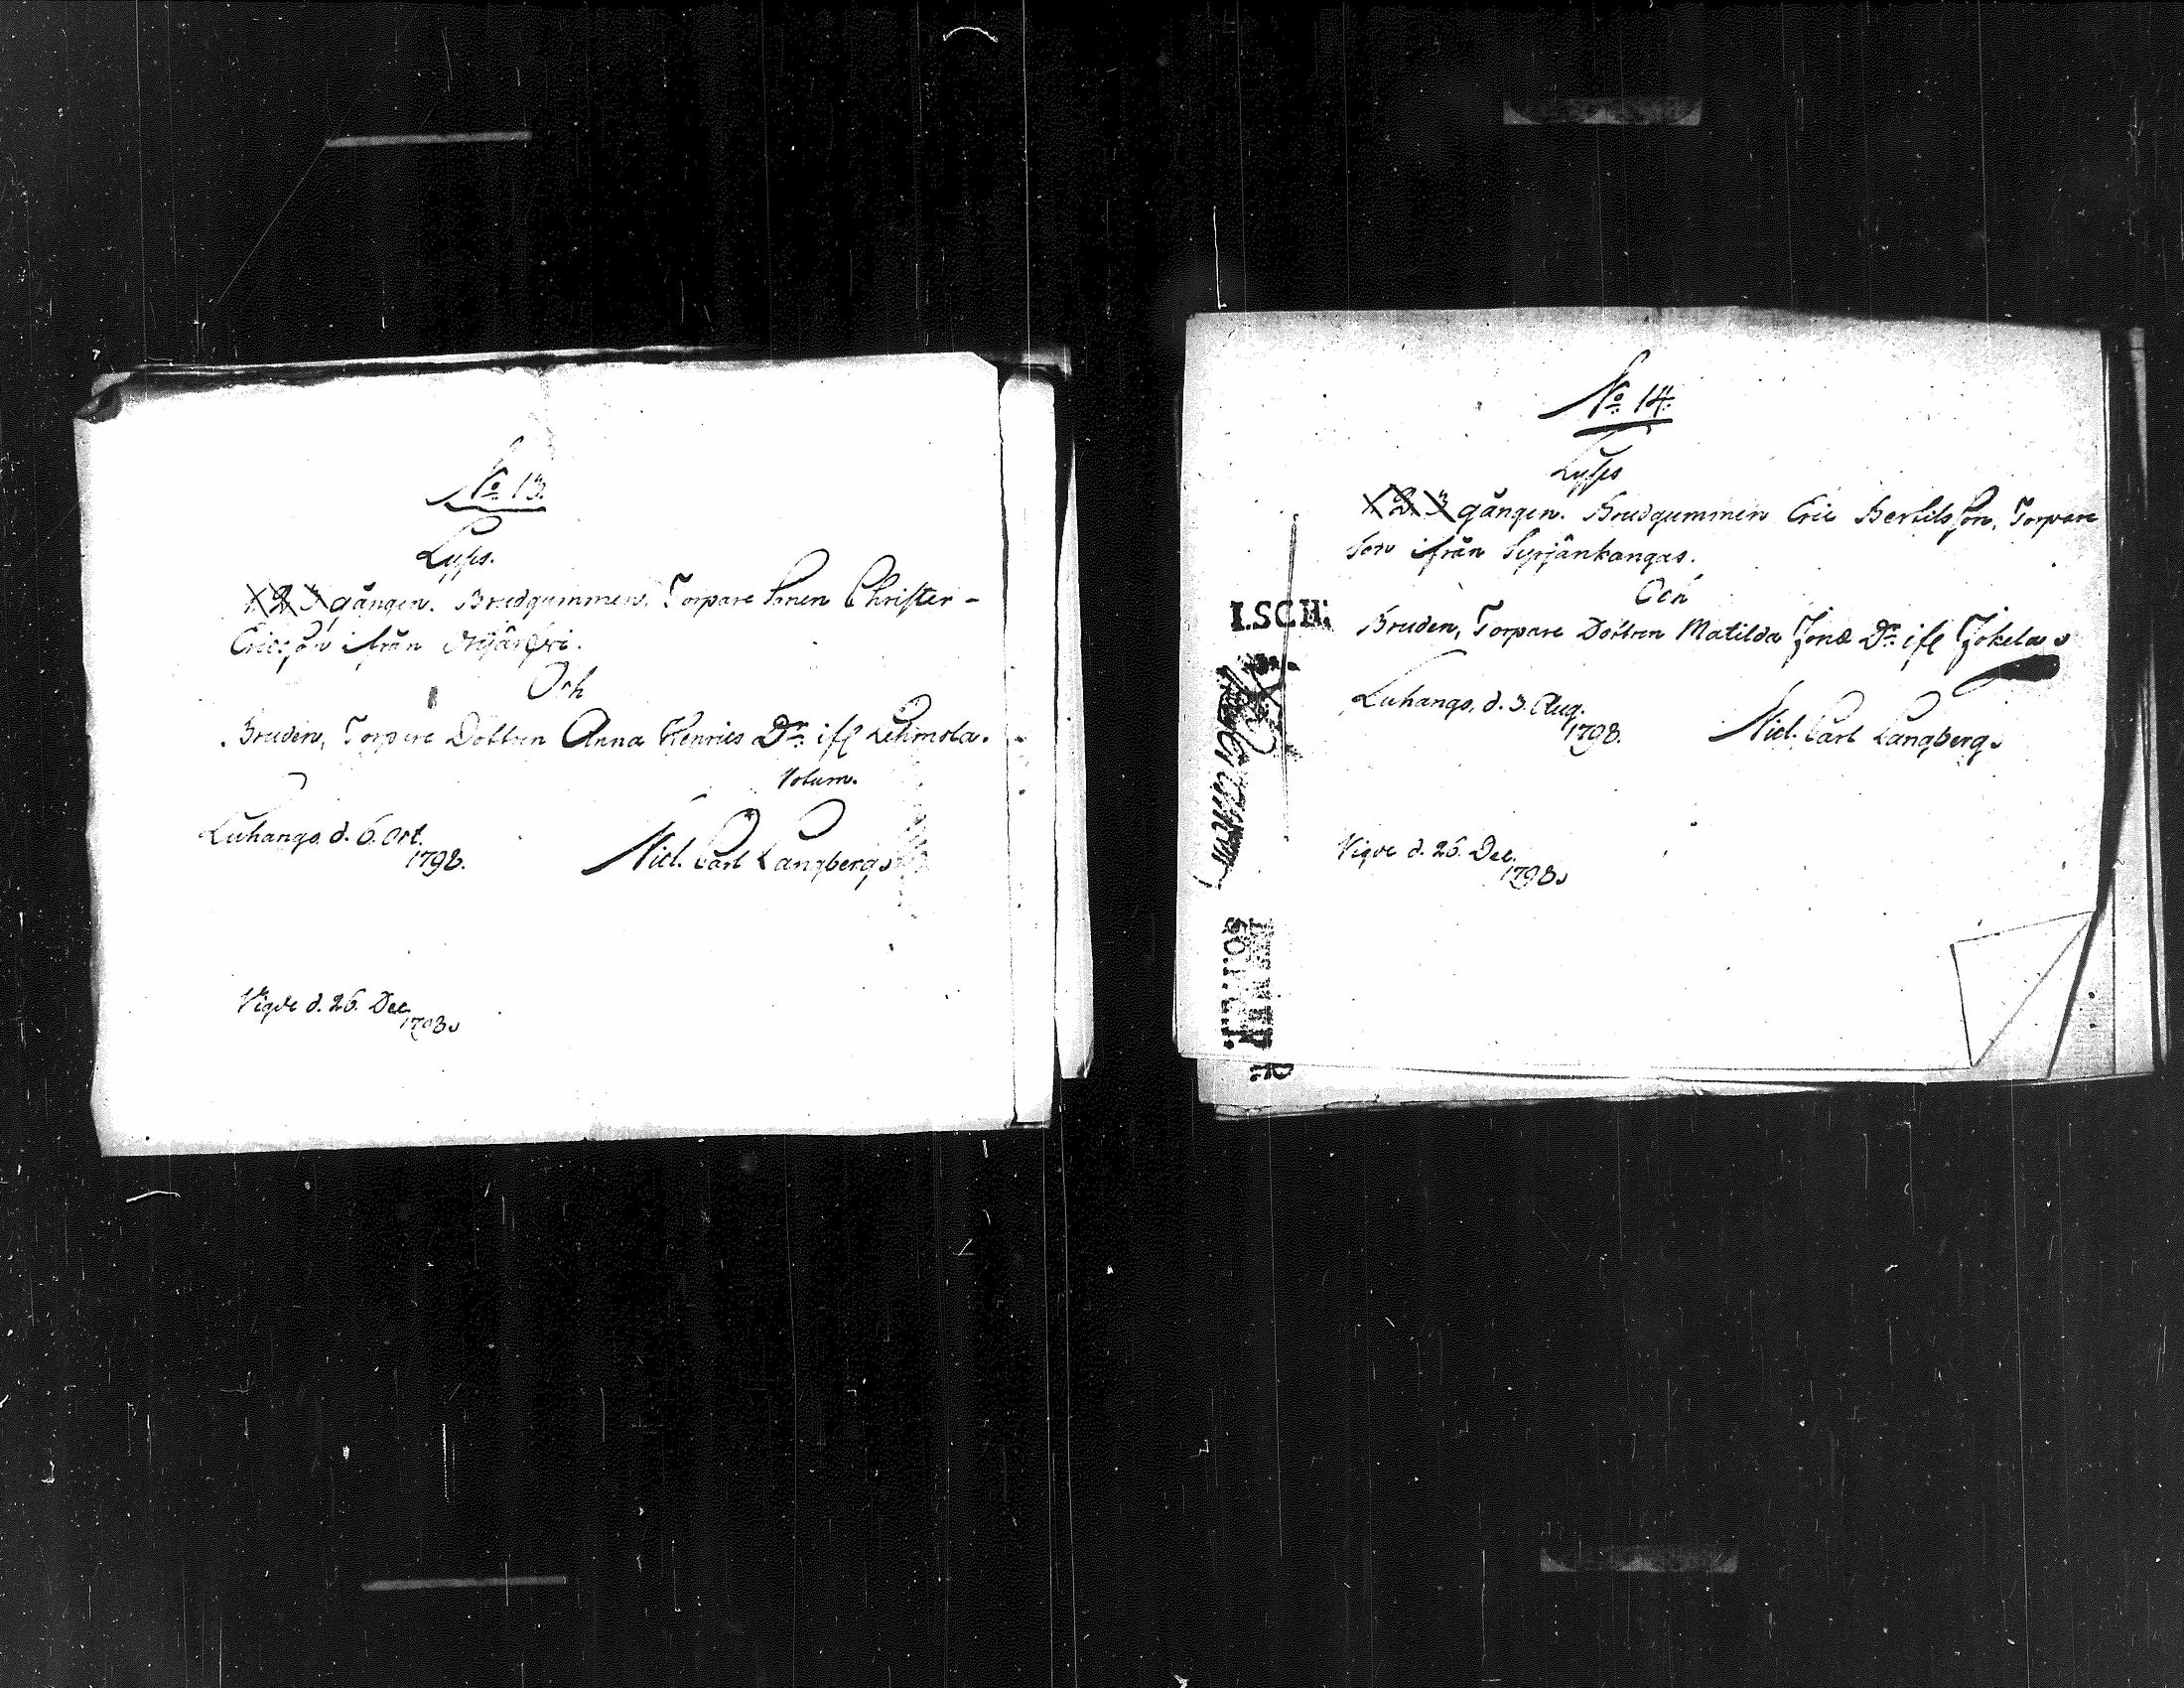 No 13.
Lyses.
1. 2. 3 gången. Brudgummen, Torpare Sonen Christer -
Ericsson ifrån
Och
Bruden, Torpare Dottren Anna Henrics Dr. ifl Lehmola.
Votum.
Luhango d. 6. Oct.
1798.
Nicl. Carl Langberg
Vigde d. 26. Dec.
1798
No 14.
Lyses
1. 2. 3 gången. Brudgummen Eric Bertilsson, Torpare
Son ifrån Syrjänkangas.
Och
Bruden, Torpare Dottren Matilda Jonæ Dr. ifl Jokela
Luhango, d. 3. Aug.
1798.
Nicl. Carl Langberg
Vigde d. 26. Dec.
1798
I.SCH.